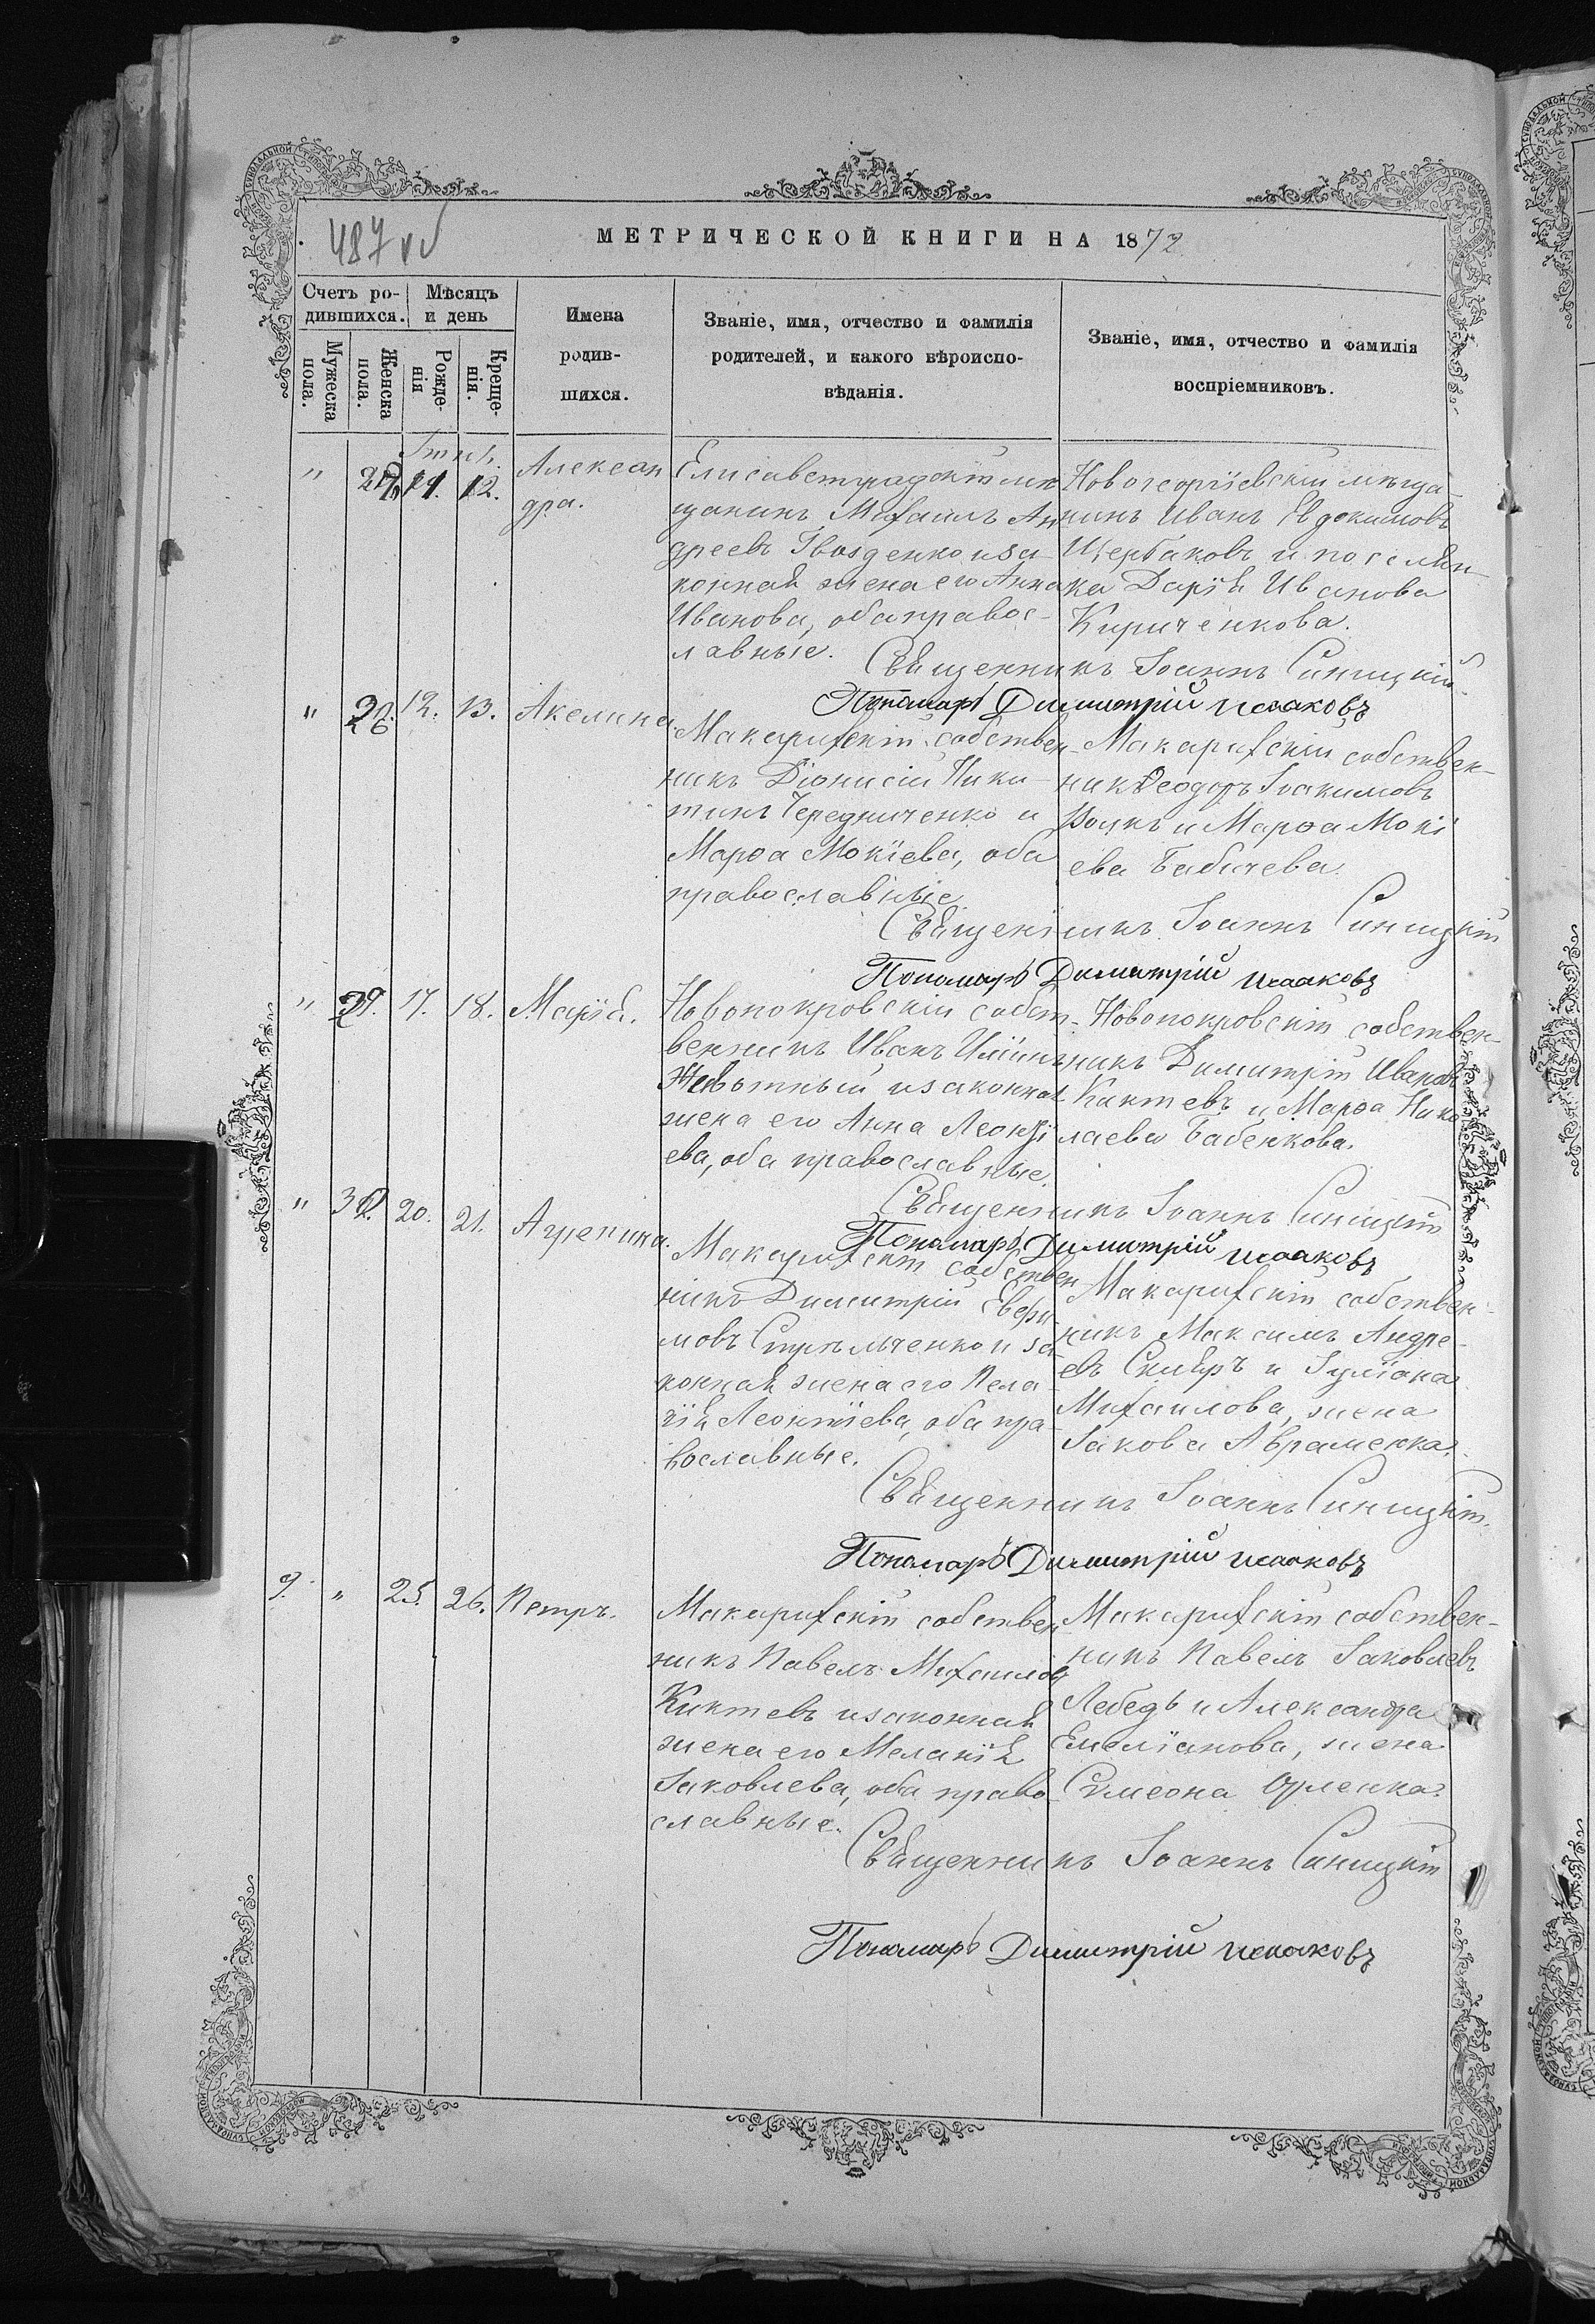 487 об
МЕТРИЧЕСКОЙ КНИГИ НА 1872
Счетъ ро-
дившихся.
Мѣсяцъ
и день
Мужеска
пола.
Женска
пола.
Рожде-
нія
Креще-
нія.
Имена
родив-
шихся.
Званіе, имя, отчество и фамилія
родителей, и какого вѣроиспо-
вѣданія.
Званіе, имя, отчество и фамилія
воспріемниковъ.
" 11. 12. Алексан
дра.
Елисаветрадскій мѣ
щанинъ Михаилъ Ан
дреевъ Гвозденко и за-
конная жена его Анна
Иванова, оба правос-
лавные.
Новогеоргіевскій мѣща-
нинъ Иванъ Евдокимовъ
Щербаковъ и поселян-
ка Дарія Иванова
Кириченкова.
Священникъ Іоаннъ Синицкій
Пономарь Димитрій Исааковъ
" 12. 13. Акелина.
Макарихскій собствен-
никъ Діонисій Ники-
тинъ Чередниченко и
Марѳа Мокіева, оба
православные
Макарихскій собствен-
никъ Ѳеодоръ Іоакимовъ
Волкъ и Марѳа Мокі
ева Бабичева.
Священникъ Іоаннъ Синицкій
Пономарь Димитрій Исааковъ
" 29. 17. 18. Марія.
Новопокровскій собст-
венникъ Иванъ Иліинъ
Животный и законная
жена его Анна Леонті
ева, оба православные.
Новопокровскій собствен-
никъ Димитрій Ивановъ
Киктевъ и Марѳа Нико
лаева Бабенкова.
Священникъ Іоаннъ Синицкій
Пономарь Димитрій Исааковъ
" 30. 20. 21. Агрепина.
Макарихскій собствен
никъ Димитрій Евфи-
мовъ Стрѣльченко и за-
конная жена его Пела-
гія Леонтіева, оба пра-
вославные.
Макарихскій собствен-
никъ Максимъ Андре-
евъ Скибръ и Іуліана
Михаилова, жена
Іакова Авраменка.
Священникъ Іоаннъ Синицкій.
Пономарь Димитрій Исааковъ
9. " 25. 26. Петръ.
Макарихскій собствен
никъ Павелъ Михаиловъ
Киктевъ и законная
жена его Меланія
Іаковлева, оба право-
славные.
Макарихскій собствен-
никъ Павелъ Іаковлевъ
Лебедь и Александра
Емеліанова, жена
Симеона Орленка.
Священникъ Іоаннъ Синицкій
Пономарь Димитрій Исааковъ